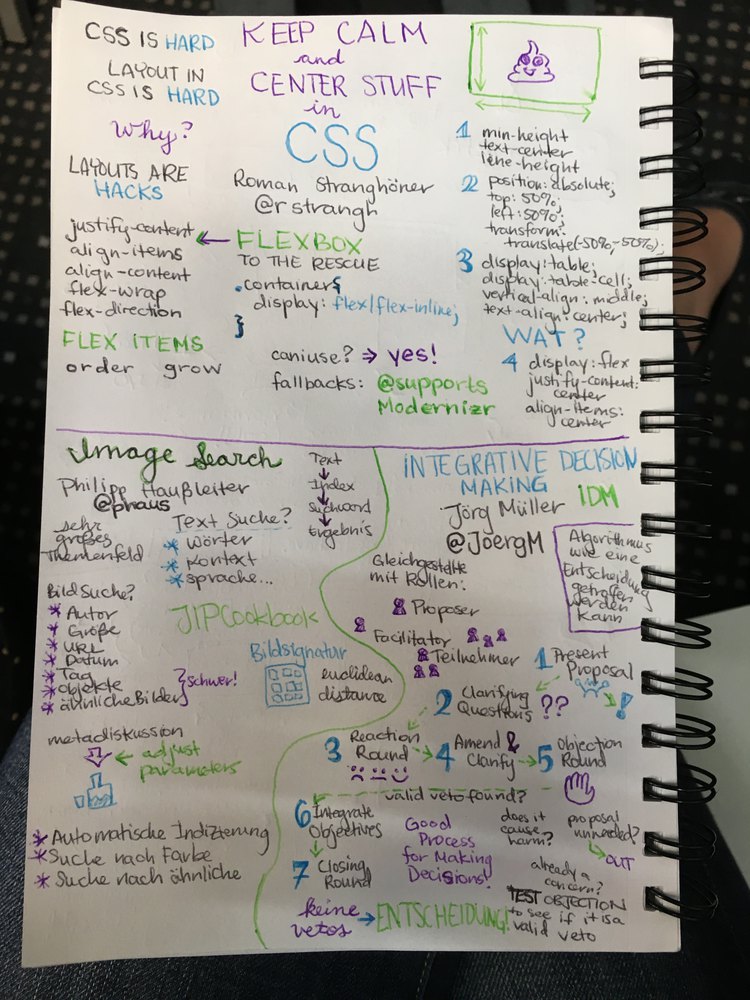 CSS IS HARD
LAYOUT IN
CSS IS HARD
Why?
LAYOUTS ARE
HACKS
KEEP CALM
and
CENTER STUFF
in
CSS
Roman Stranghöner
@rstrangh
FLEXBOX
TO THE RESCUE
.container{
display: flex/flex-inline;
}
justify-content
align-items
align-content
flex-wrap
flex-direction
FLEX ITEMS
order grow
caniuse? → yes!
fallbacks: @supports
Modernizr
1 min-height
text-center
line-height
2 position: absolute;
top: 50%;
left: 50%;
transform:
translate(-50%,-50%);
3 display: table;
display: table-cell;
vertical-align: middle;
text-align: center;
WAT?
4 display: flex
justify-content:
center
align-items:
center
Image Search
Philipp Haußleiter
@phaus
sehr
großes
Themenfeld
Text Suche?
* Wörter
* Kontext
* Sprache...
Text
Index
Suchwort
Ergebnis
BildSuche?
* Autor
* Größe
* URL
* Datum
* Tag
* Objekte
* ähnliche Bilder
} schwer!
JIPCookbook
Bildsignatur
euclidean
distance
metadiskussion
← adjust
parameters
* Automatische Indizierung
* Suche nach Farbe
* Suche nach ähnliche
INTEGRATIVE DECISION
MAKING
IDM
Jörg Müller
@JoergM
Algorithmus
wie eine
Entscheidung
getroffen
werden
kann
Gleichgestellte
mit Rollen:
Proposer
Facilitator
Teilnehmer
1 Present
Proposal
!
2 Clarifying
Questions ??
3 Reaction
Round
4 Amend &
Clarify
5 Objection
Round
valid veto found?
6 Integrate
Objectives
7 Closing
Round
Good
Process
for Making
Decisions!
does it
cause
harm?
proposal
unneeded?
OUT
already a
concern?
TEST OBJECTION
to see if it is a
valid veto
keine
vetos
→ ENTSCHEIDUNG!